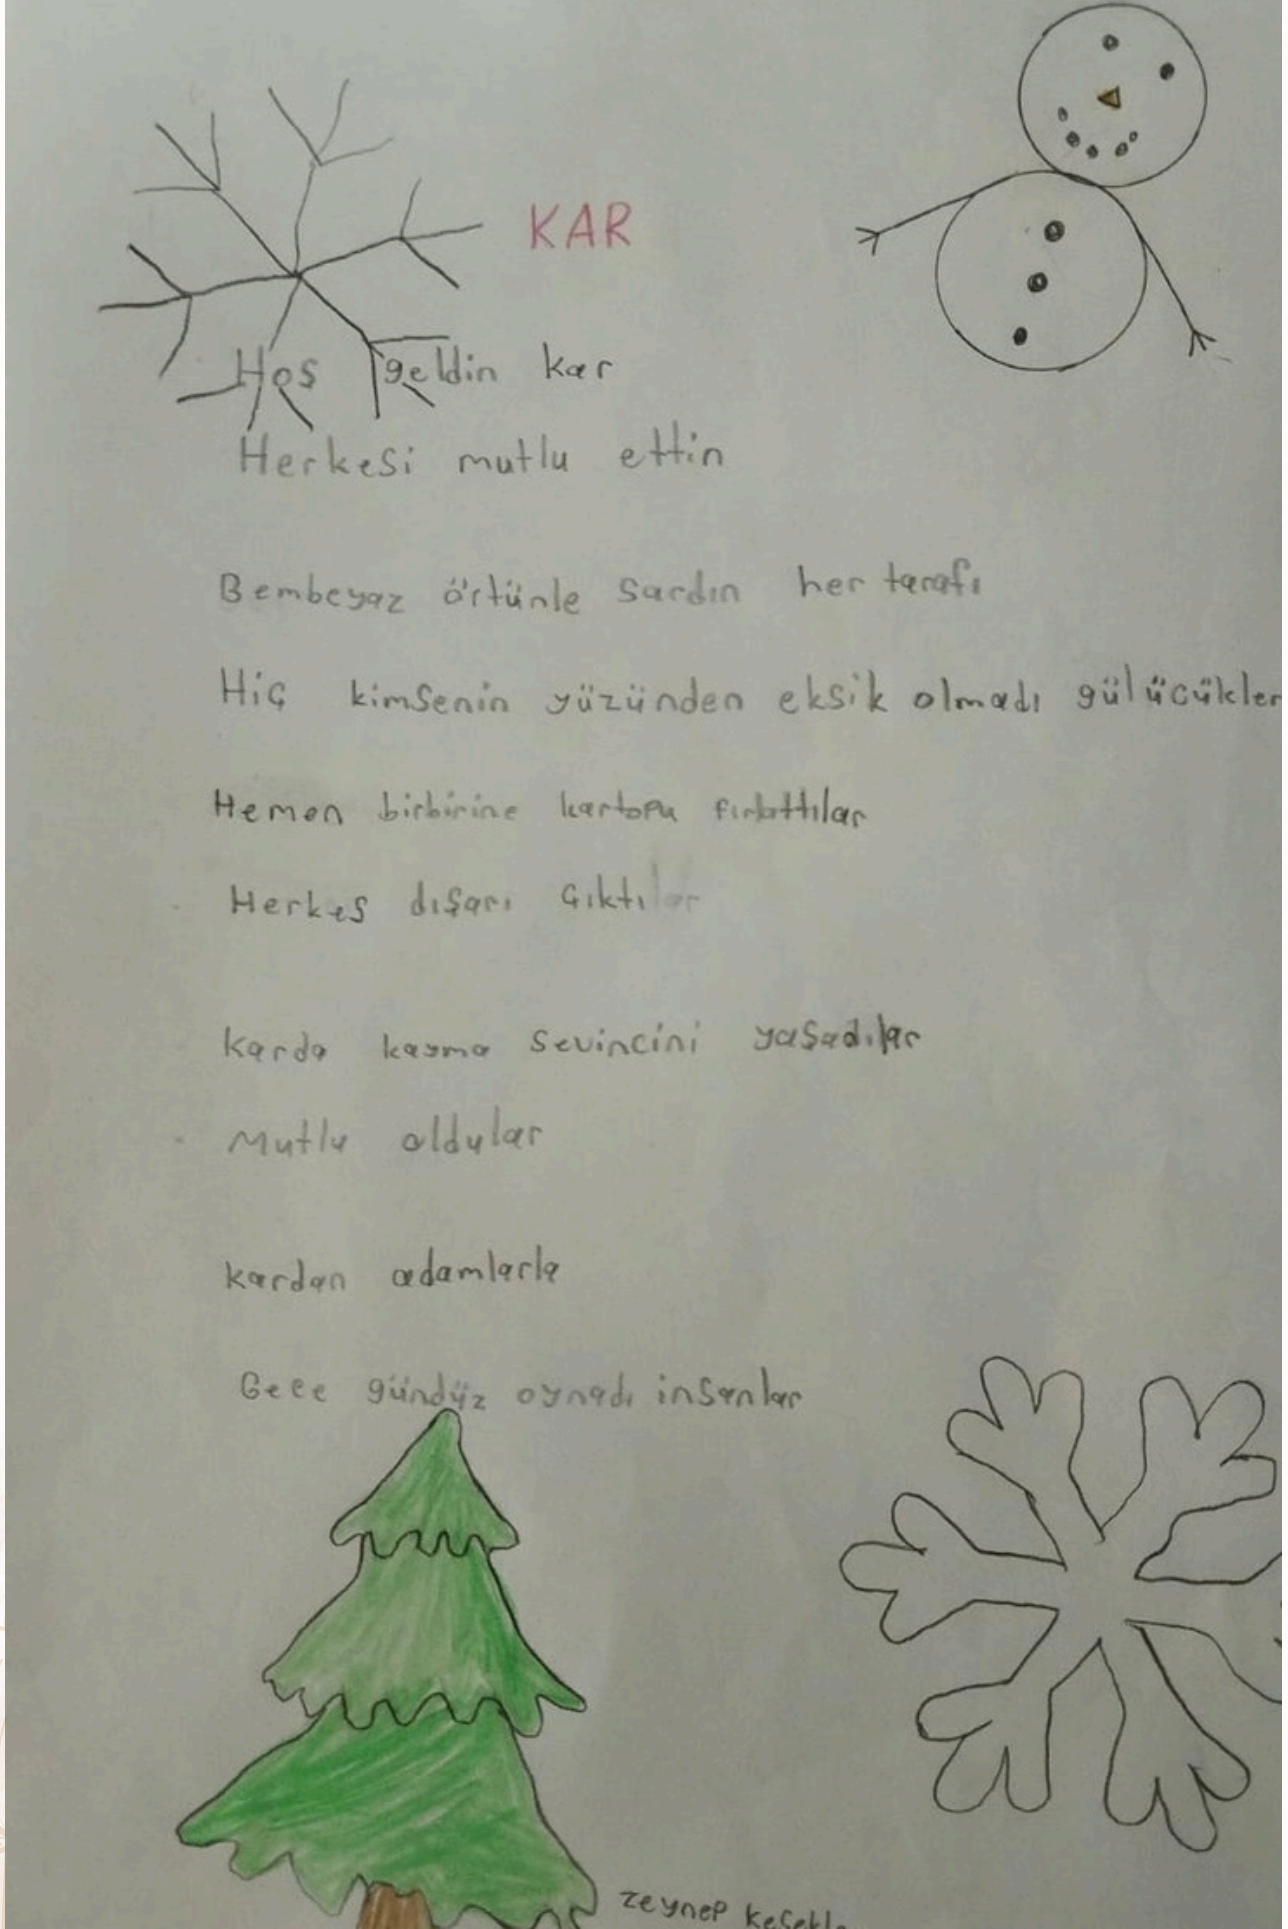 KAR
Hoş geldin kar
Herkesi mutlu ettin
Bembeyaz örtünle sardın her tarafı
Hiç kimsenin yüzünden eksik olmadı gülücükler
Hemen birbirine kartopu fırlattılar
Herkes dışarı çıktılar
Karda kayma sevincini yaşadılar
Mutlu oldular
Kardan adamlarla
Gece gündüz oynadı insanlar
Zeynep